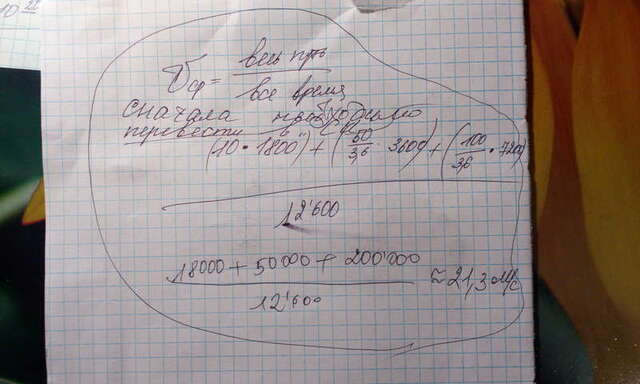 Vср = весь путь / все время
сначала необходимо
перевести в
(10 • 1800) + (50/3,6 • 3600) + (100/3,6 • 7200)
12'600
18000 + 50000 + 200'000
12'600
≈ 21,3 м/с